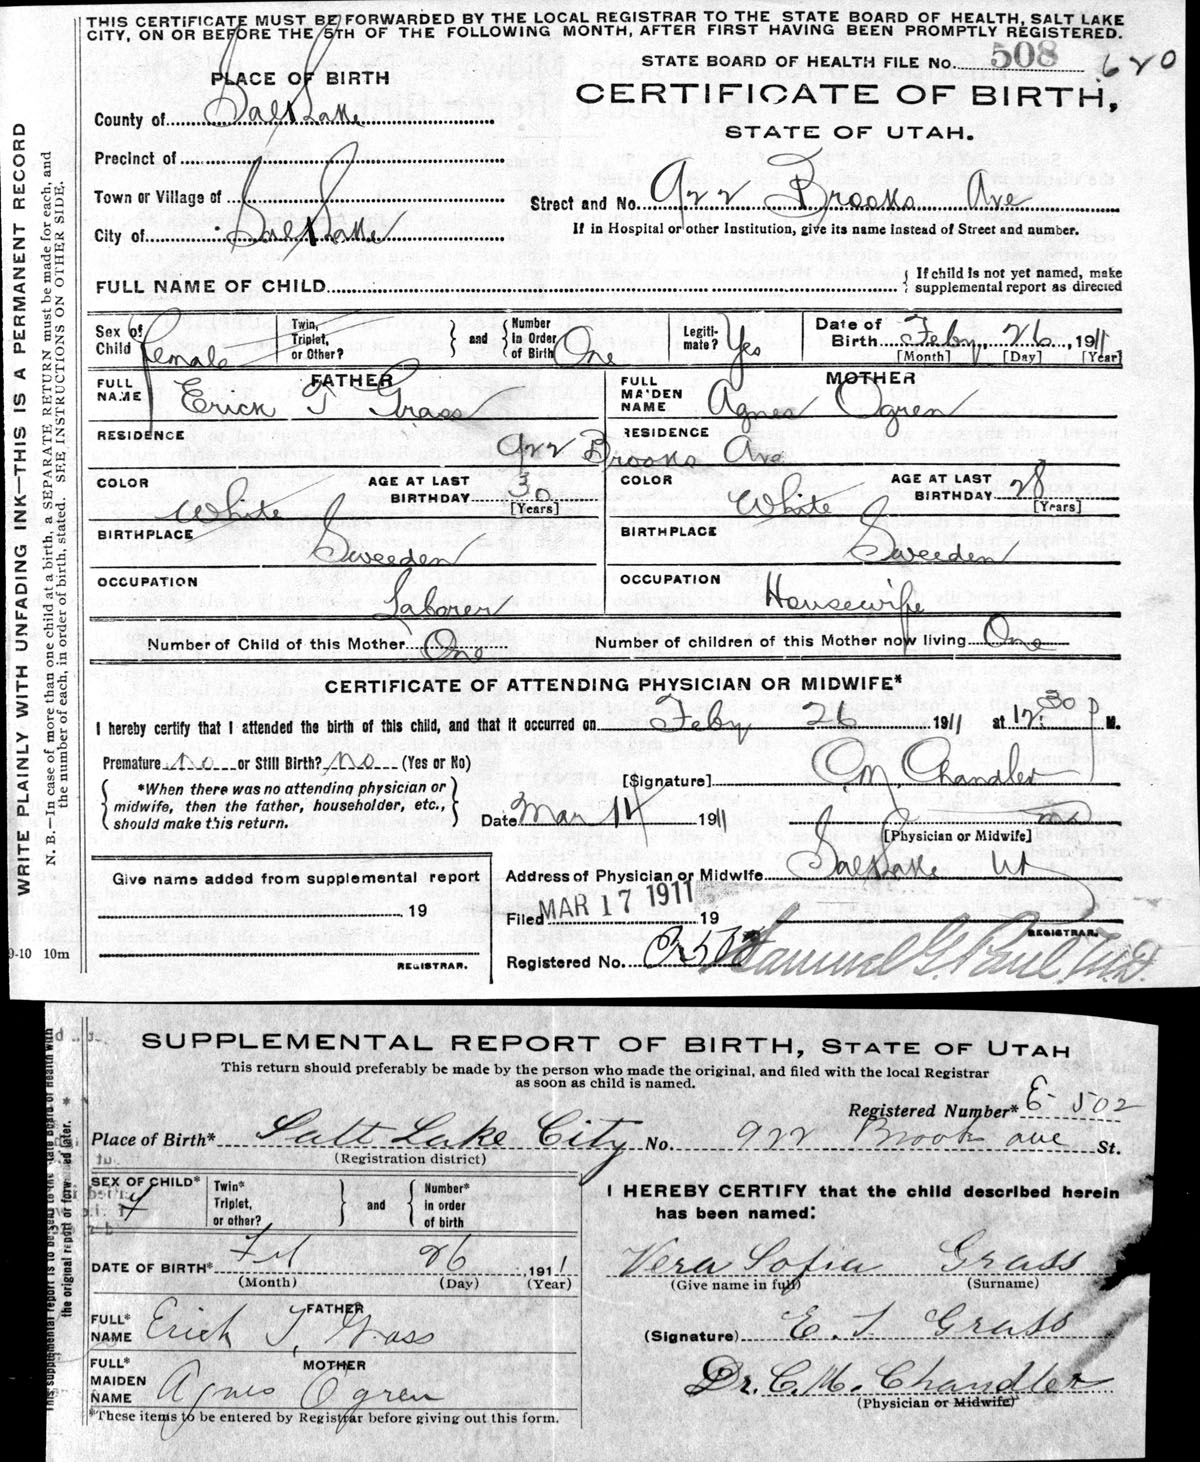 THIS CERTIFICATE MUST BE FORWARDED BY THE LOCAL REGISTRAR TO THE STATE BOARD OF HEALTH, SALT LAKE
CITY, ON OR BEFORE THE 5TH OF THE FOLLOWING MONTH, AFTER FIRST HAVING BEEN PROMPTLY REGISTERED.
STATE BOARD OF HEALTH FILE No. 508 620
PLACE OF BIRTH
CERTIFICATE OF BIRTH,
STATE OF UTAH.
County of Salt Lake
Precinct of
Town or Village of
Street and No. 922 Brooks Ave
City of Salt Lake
If in Hospital or other Institution, give its name instead of Street and number.
FULL NAME OF CHILD
If child is not yet named, make
supplemental report as directed
Sex of Child Female
Twin, Triplet, or Other?
and
Number in Order of Birth One
Legitimate? Yes
Date of Birth Feby 26, 1911
[Month] [Day] [Year]
FATHER
FULL NAME Erick T Grass
MOTHER
FULL MAIDEN NAME Agnes Ogren
RESIDENCE RESIDENCE
922 Brooks Ave
COLOR White AGE AT LAST BIRTHDAY 30 [Years]
COLOR White AGE AT LAST BIRTHDAY 28 [Years]
BIRTHPLACE Sweden
BIRTHPLACE Sweden
OCCUPATION Laborer
OCCUPATION Housewife
Number of Child of this Mother One Number of children of this Mother now living One
CERTIFICATE OF ATTENDING PHYSICIAN OR MIDWIFE*
I hereby certify that I attended the birth of this child, and that it occurred on Feby 26 1911 at 12:30 P M.
Premature no or Still Birth? no (Yes or No)
[Signature] C.M. Chandler
*When there was no attending physician or
midwife, then the father, householder, etc.,
should make this return.
Date Mar 14 1911
MD
[Physician or Midwife]
Give name added from supplemental report
19
REGISTRAR.
Address of Physician or Midwife Salt Lake Ut
Filed MAR 17 1911 19
REGISTRAR.
Registered No. E 502 Samuel G. Paul, M.D.
WRITE PLAINLY WITH UNFADING INK—THIS IS A PERMANENT RECORD
N. B.—In case of more than one child at a birth, a SEPARATE RETURN must be made for each, and
the number of each, in order of birth, stated. SEE INSTRUCTIONS ON OTHER SIDE.
9-10 10m
SUPPLEMENTAL REPORT OF BIRTH, STATE OF UTAH
This return should preferably be made by the person who made the original, and filed with the local Registrar
as soon as child is named.
Registered Number* E-502
Place of Birth* Salt Lake City No. 922 Brooks ave St.
(Registration district)
SEX OF CHILD* F
Twin* Triplet, or other?
and
Number* in order of birth
I HEREBY CERTIFY that the child described herein
has been named:
DATE OF BIRTH* Feb 26 1911
(Month) (Day) (Year)
Vera Sofia Grass
(Give name in full) (Surname)
FATHER
FULL* NAME Erick T. Grass
(Signature) E. T. Grass
MOTHER
FULL* MAIDEN NAME Agnes Ogren
Dr. C. M. Chandler
(Physician or Midwife)
*These items to be entered by Registrar before giving out this form.
the original report or forwarded later. *